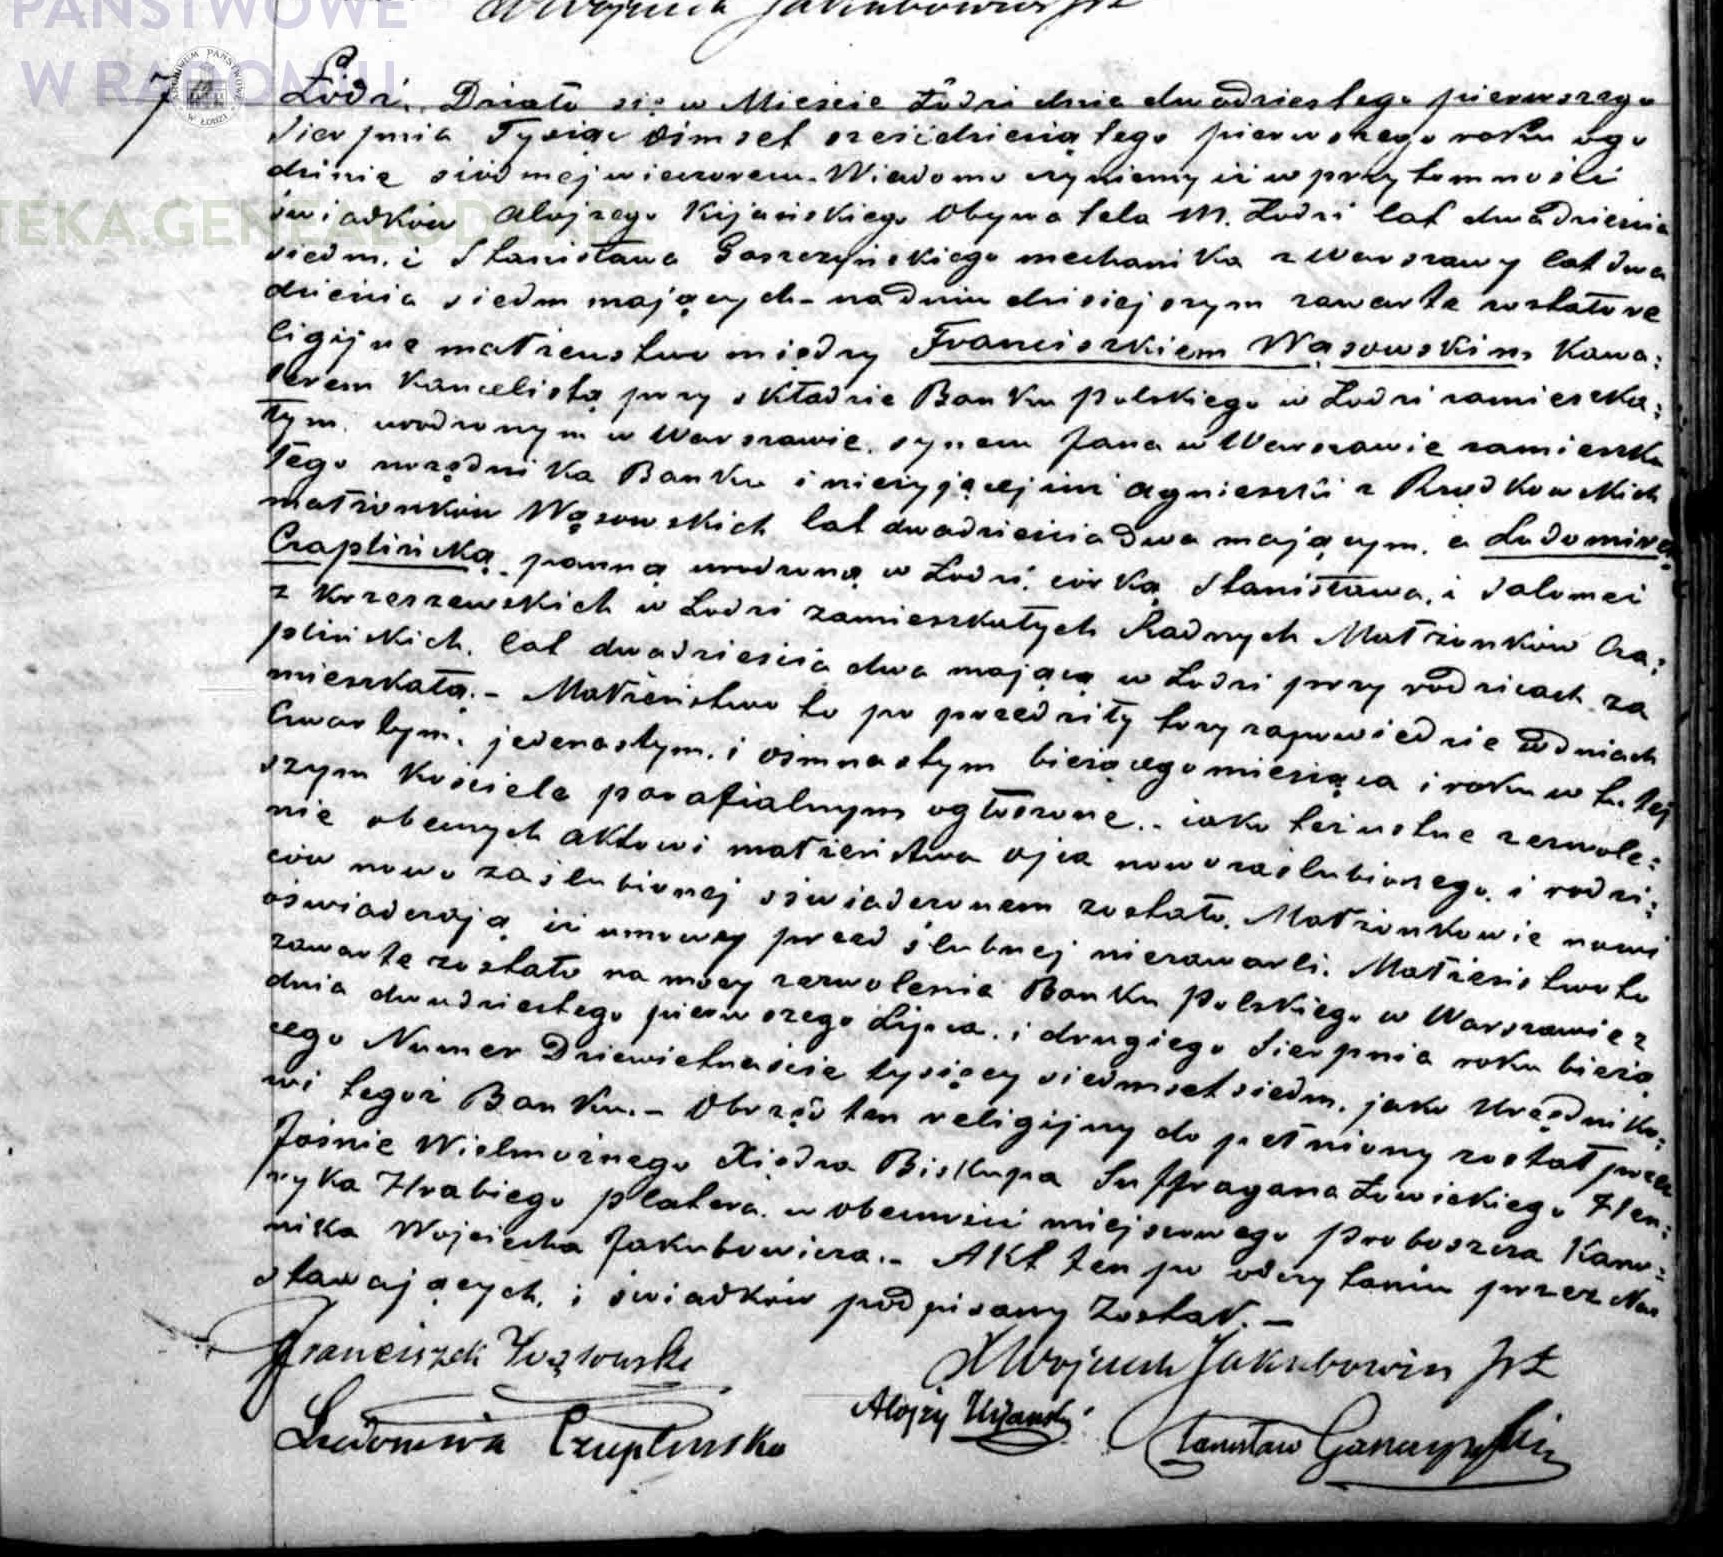 PAŃSTWOWE
W RADOMIU
TEKA.GENEALODZY.PL
ARCHIWUM PAŃSTWOWE W ŁODZI
X Wojciech Jakubowicz
7 Łódź. Działo się w Mieście Łodzi dnia dwudziestego pierwszego
Sierpnia Tysiąc Ośmset sześćdziesiątego pierwszego roku o go
dzinie siódmej wieczorem. Wiadomo czyniemy iż w przytomności
świadków Alojzego Kijańskiego Obywatela M. Łodzi lat dwadzieścia
siedm, i Stanisława Gaszczyńskiego mechanika z Warszawy lat dwa
dzieścia siedm mających – na dniu dzisiejszym zawarte zostało re
ligijne małżeństwo między Franciszkiem Wąsowskim Kawa:
lerem Kancelistą przy składzie Banku Polskiego w Łodzi zamieszka:
łym, urodzonym w Warszawie, synem Jana w Warszawie zamieszka
łego urzędnika Banku i nieżyjącej już Agnieszki z
małżonków Wąsowskich lat dwadzieścia dwa mającym, a Ludomirą
Czaplińską panną urodzoną w Łodzi, córką Stanisława, i Salomei
z Krzeszewskich w Łodzi zamieszkałych Radnych Małżonków Cza:
plińskich, lat dwadzieścia dwa mającą w Łodzi przy rodzicach za
mieszkałą. – Małżeństwo to po przedziły trzy zapowiedzie w dniach
Czwartym, jedenastym, i ośmnastym bieżącego miesiąca i roku w tutej
szym Kościele parafialnym ogłoszone, – jako też ustne zezwole:
nie obecnych aktowi małżeństwa ojca nowozaślubionego, i rodzi:
ców nowo zaślubionej oświadczonem zostało. Małżonkowie nowi
oświadczają iż umowy przed ślubnej niezawarli. Małżeństwo to
zawarte zostało na mocy zezwolenia Banku Polskiego w Warszawie z
dnia dwudziestego pierwszego Lipca, i drugiego Sierpnia roku bieżą
cego Numer Dziewietnaście tysięcy siedmset siedm, jako Urzędniko:
wi tegoż Banku. – Obrzęd ten religijny dopełniony został przez
Jaśnie Wielmożnego Xiędza Biskupa Suffragana Łowickiego Hen:
ryka Hrabiego Platera, w obecności miejscowego Proboszcza Kano:
nika Wojciecha Jakubowicza. – Akt ten po odczytaniu przez Nas
stawających, i świadków podpisany Został. –
Franciszek Wąsowski
X Wojciech Jakubowicz
Ludomira Czaplinska
Alojzy Kijański
Stanisław Gaszczyński